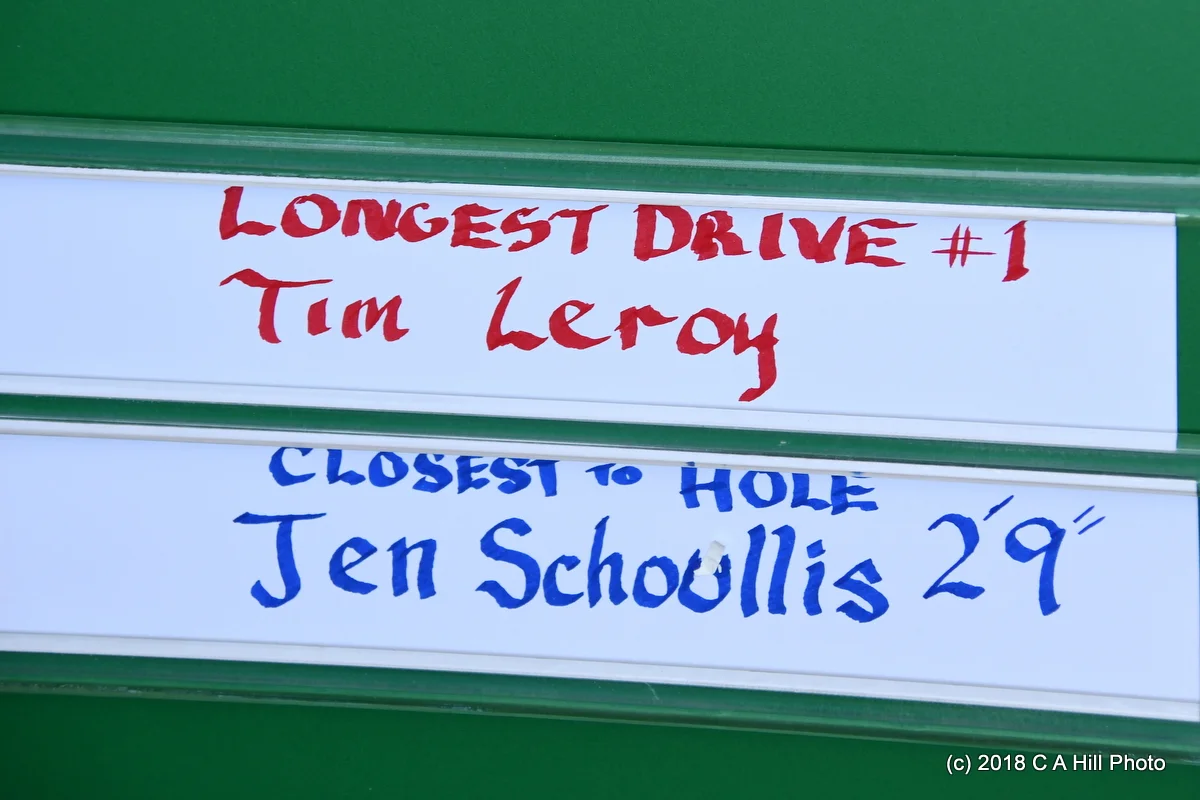 LONGEST DRIVE #1
Tim Leroy
CLOSEST TO HOLE
Jen Schoullis 2'9"
(c) 2018 C A Hill Photo